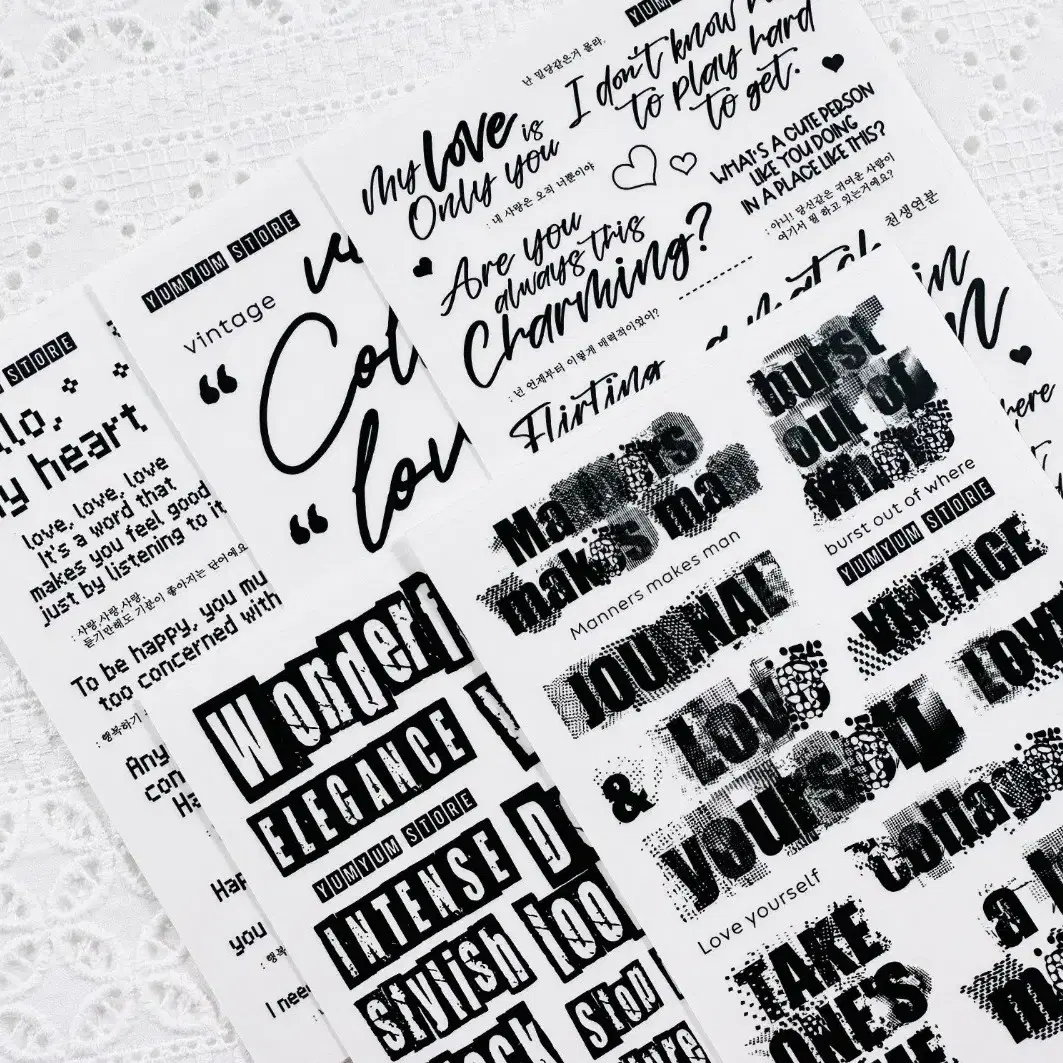 YUMYUM STORE
vintage
“
“
STORE
heart
love, love, love
It's a word that
makes you feel good
just by listening to it
: 사랑,사랑,사랑,
듣기만해도 기분이 좋아지는 단어예요
To be happy, you mu
too concerned with
: 행복하기
Any
con
Ha
Hap
you
: 행복
I need
난 밀당같은거 몰라.
I don't know
to play hard
to get.
My love is
Only you
: 내 사랑은 오직 너뿐이야
WHAT'S A CUTE PERSON
LIKE YOU DOING
IN A PLACE LIKE THIS?
: 아니! 당신같은 귀여운 사람이
여기서 뭘 하고 있는거예요?
Are you
always this
Charming?
: 넌 언제부터 이렇게 매력적이었어?
천생연분
Flirting
in
here
Wonderf
ELEGANCE
YUMYUM STORE
INTENSE D
stylish loo
stop
Manners
makes man
Manners makes man
burst
out of
where
burst out of where
YUMYUM STORE
JOURNAL
VINTAGE
& Love
yourself
LOV
Love yourself
collag
TAKE
ONE'S
a
m